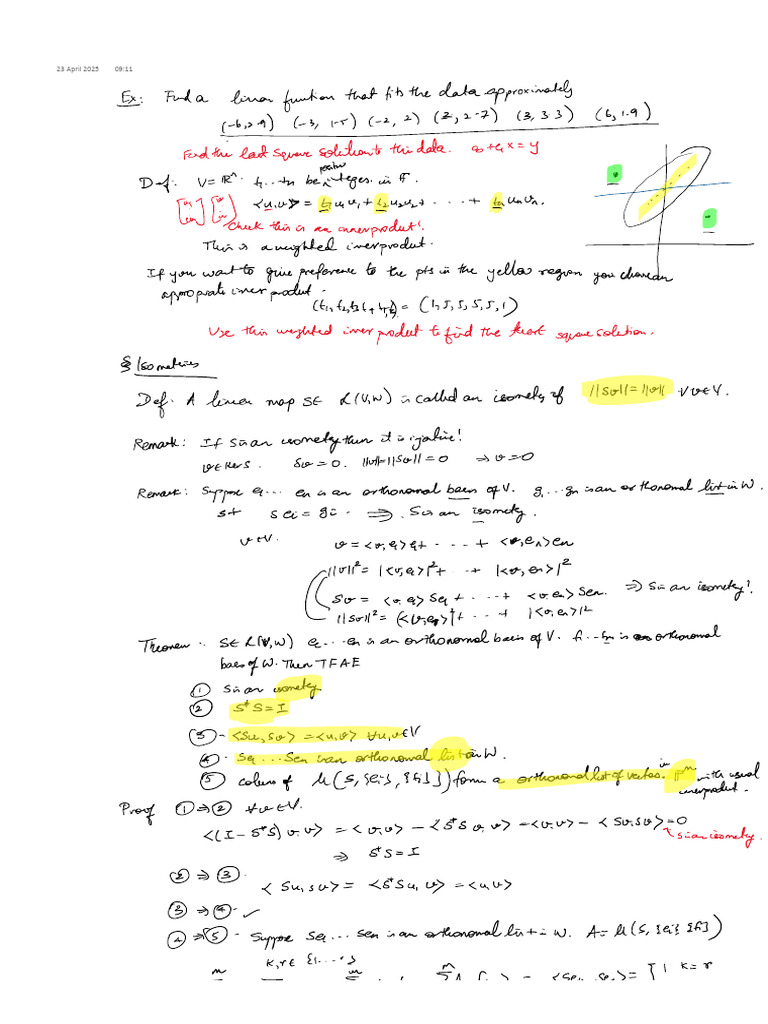 23 April 2025 09:11
Ex: Find a linear function that fits the data approximately
(-6, 2.9) (-3, 1.5) (-2, 2) (2, 2.7) (3, 3.3) (6, 1.9)
Find the least square solution to this data. a₀ + a₁x = y
Def: V = ℝⁿ. t₁ ... tₙ be positive integers in F.
<u, v> = t₁u₁v₁ + t₂u₂v₂ + ... + tₙuₙvₙ.
Check this is an inner product!
This is a weighted inner product.
If you want to give preference to the pts in the yellow region you choose an
appropriate inner product.
= (1, 5, 5, 5, 5, 1)
Use this weighted inner product to find the least square solution.
§ Isometries
Def. A linear map S ∈ L(V, W) is called an isometry if ||Sv|| = ||v|| ∀ v ∈ V.
Remark: If S is an isometry then it is injective!
v ∈ Ker S. Sv = 0. ||v|| = ||Sv|| = 0 ⇒ v = 0
Remark: Suppose e₁ ... eₙ is an orthonormal basis of V. g₁ ... gₙ is an orthonormal list in W.
st Seᵢ = gᵢ ⇒ S is an isometry.
v ∈ V. v = <v, e₁>e₁ + ... + <v, eₙ>eₙ
||v||² = |<v, e₁>|² + ... + |<v, eₙ>|²
Sv = <v, e₁>Se₁ + ... + <v, eₙ>Seₙ ⇒ S is an isometry!
||Sv||² = |<v, e₁>|² + ... + |<v, eₙ>|²
Theorem: S ∈ L(V, W) e₁ ... eₙ is an orthonormal basis of V. f₁ ... fₘ is an orthonormal
basis of W. Then TFAE
① S is an isometry
② S*S = I
③ <Su, Sv> = <u, v> ∀ u, v ∈ V
④ Se₁ ... Seₙ is an orthonormal list in W.
⑤ columns of M(S, {eᵢ}, {fⱼ}) form a orthonormal list of vectors in Fᵐ with usual
inner product.
Proof ① ⇒ ② ∀ v ∈ V.
<(I - S*S)v, v> = <v, v> - <S*Sv, v> = <v, v> - <Sv, Sv> = 0
S is an isometry
⇒ S*S = I
② ⇒ ③
<Su, Sv> = <S*Su, v> = <u, v>
③ ⇒ ④ ✓
④ ⇒ ⑤ Suppose Se₁ ... Seₙ is an orthonormal list in W. A = M(S, {eᵢ} {fⱼ})
k, r ∈ {1, ... }